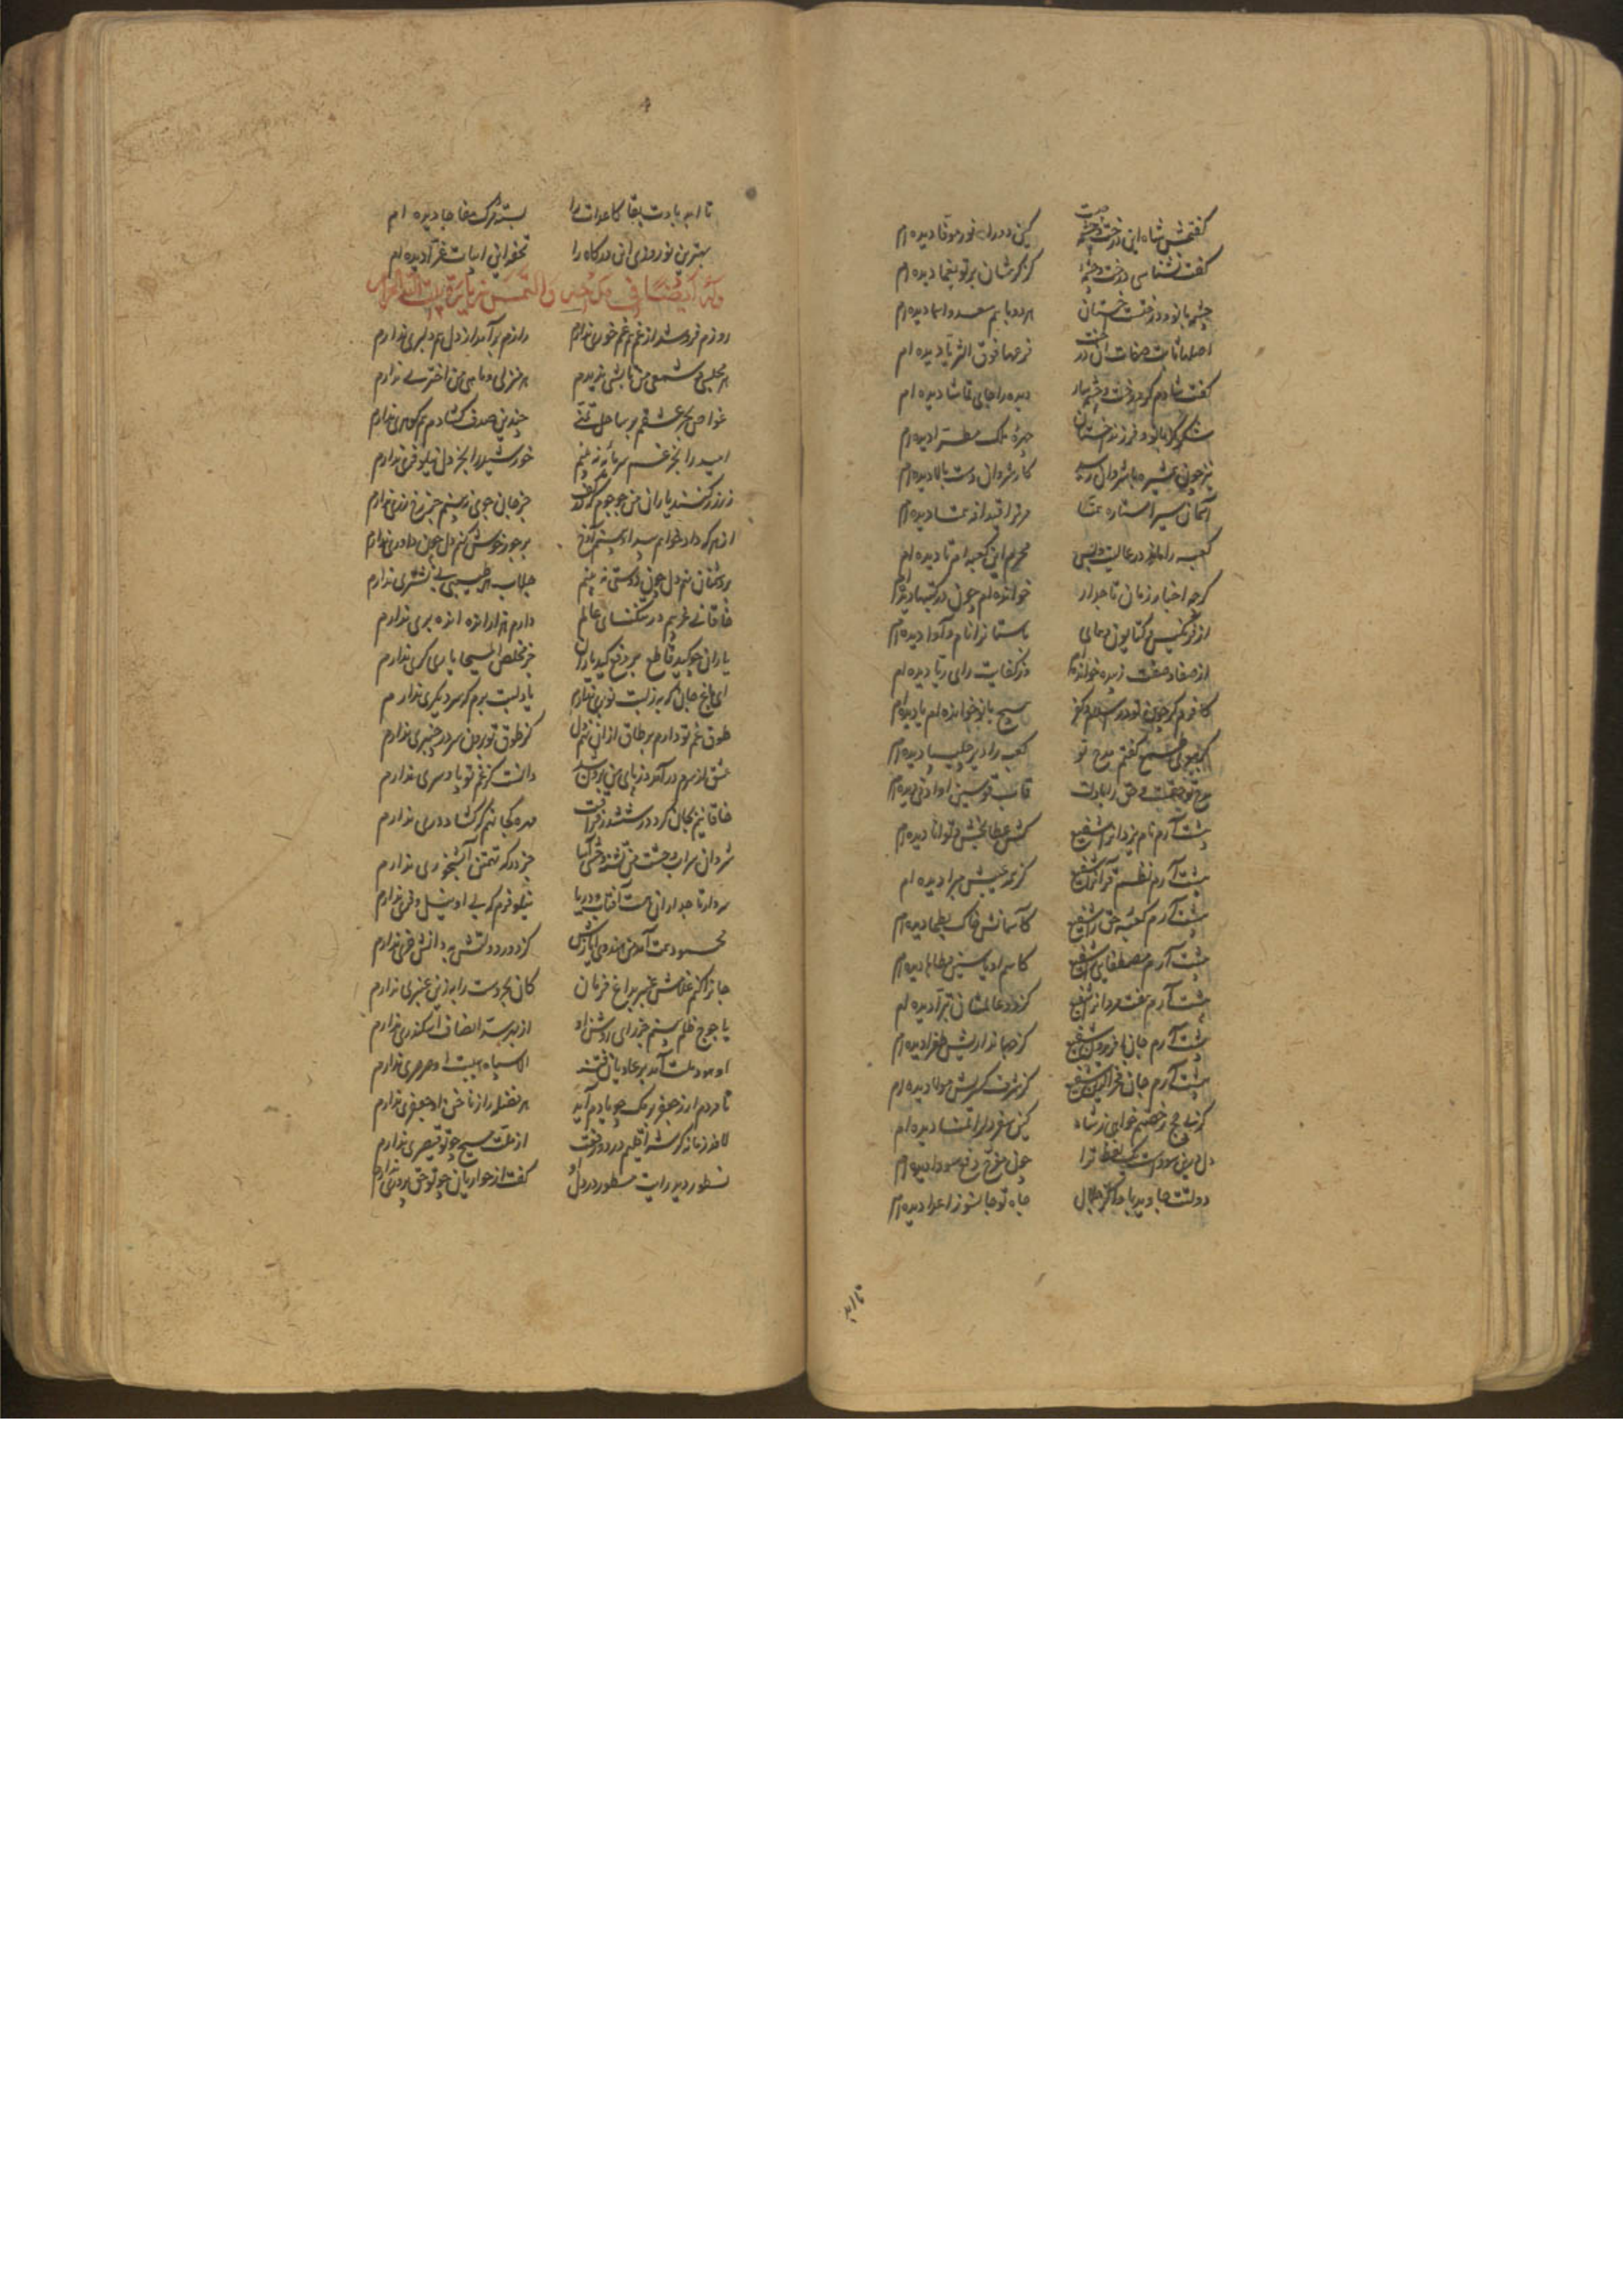 گفتمش شاه این درخت و چشمه چیست کین دو را نور موفا دیده ام
گفت نشناسی درخت و چشمه کز کرشان بر تو نعما دیده ام
چشمه بانو و درخت اخستان هر دو با هم سعد و اسما دیده ام
اصلها ثابت صفات آن درخت فرعها فوق الثریا دیده ام
گفت شادم کز درخت و چشمه سار دیده را جای تماشا دیده ام
شکر کز بانو و فرزند اخستان چهره ملک مطرا دیده ام
نیز چون همشیره با شروان رسید کار شروان دست بالا دیده ام
آسمان ستر و ستاره همتا
کعبه را ماند در عالیت و بس محرم این کعبه ام تا دیده ام
گرچه اخبار زنان تاجدار خوانده ام چون در کتبها دیده ام
از فرنگیس و کتایون و همای باستان را نام و آوا دیده ام
از صفا و صفت زبیده خوانده ام وز کفایت رای زبا دیده ام
کافرم گر چون تو در اسلام و کفر هیچ بانو خوانده ام یا دیده ام
گر بجوی طمع گفتم مدح تو کعبه را دیر چلیپا دیده ام
مدح تو حق است و حق را با دلت قاب قوسین او ادنی دیده ام
پیشت آرم نام یزدان را شفیع کش عطابخش و توانا دیده ام
پیشت آرم نظم قرآن را شفیع کز همه عیبش مبرا دیده ام
پیشت آرم کعبه حق را شفیع کآسمانش خاک بطحا دیده ام
پیشت آرم مصطفی را شفیع کاسم او یاسین و طاها دیده ام
پیشت آرم هفت مردان را شفیع کز دو عالمشان تبرا دیده ام
پیشت آرم جان افریدون شفیع کز جهانداریش طغرا دیده ام
پیشت آرم جان فخرالدین شفیع کز شرف کسریش مولا دیده ام
کز پی حج رخصتم خواهی ز شاه کین سفر دل را تمنا دیده ام
دل درین سوداست یک لفظ ترا چون مفرح دفع سودا دیده ام
دولتت جاوید باد اندر جلال جاه تو جانسوز اعدا دیده ام
تا ابد
تا ابد بادت بقا کاعدات را بسته مرگ مفاجا دیده ام
بهترین نوروزی این درگاه را تحفه این ابیات غرا دیده ام
وله ایضا فی مدح اخیه و التمس زیارة بیت الله الحرام
روزم فروشد از غم هم غم خوری ندارم رازم برآمد از دل هم دلبری ندارم
هر مجلسی و شمعی من تابشی ندیدم هر منزلی و ماهی من اختری ندارم
غواص بحر عشقم بر ساحل تمنی چندین صدف گشادم هم گوهری ندارم
امید را بجز غم سرمایه نه بینم خورشید را بجز دل نیلوفری ندارم
زر زر کنند یاران من جوجوم که در کف جز جان جوی نه بینم جز رخ زری ندارم
از هرکه داد خواهم بیداد بینم آوخ بر جور خوش کنم دل چون داوری ندارم
بر دشمنان نهم دل چون دوستی نه بینم جلاب هر طبیبی بی نشتری ندارم
خاقانی غریبم در تنگنای عالم دارم هزار انده انده بری ندارم
یاران چو کید قاطع بر دفع کید یاران جز مخلص المسیحا یاریگری ندارم
ای باغ جان که به ز لبت نوبری ندارم یاد لبت برم که سر دیگری ندارم
طوق غم تو دارم بر طاق از آن نهم دل کز طوق تو برون سر در چنبری ندارم
عشق از سرم درآمد وز پای من برون شد دانست کز غم تو پا و سری ندارم
خاقانیم بجان گرو در ششدر فراقت مهره کجا نهم که گشاد دری ندارم
شروان سراب وحشت من تشنه وحش آسا جز درگه تهمتن آبشخوری ندارم
سردار تاجداران هست آفتاب و دریا نیلوفرم که بی او نیل و فری ندارم
محمود همت آمد من هندوی ایازش کز دور دولتش به دانش خری ندارم
جان را کنم غلامش عنبر بداغ فرمان کان بحر دست را به ازین عنبری ندارم
یاجوج ظلم بینم جز رای روشن او از بهر سد انصاف اسکندری ندارم
او هود ملت آمد بر عادیان فتنه الا سپاه هیبت او صرصری ندارم
تا در دم از جعفر برمک چو یادم آید هر فضله را ز ناخن او جعفری ندارم
لافد زمانه کز شه اقلیم در دو وقت از ملت مسیح چو تو قیصری ندارم
نسطور دید رایت مسطور در دل او گفت از حواریان چو تو حق پروری ندارم